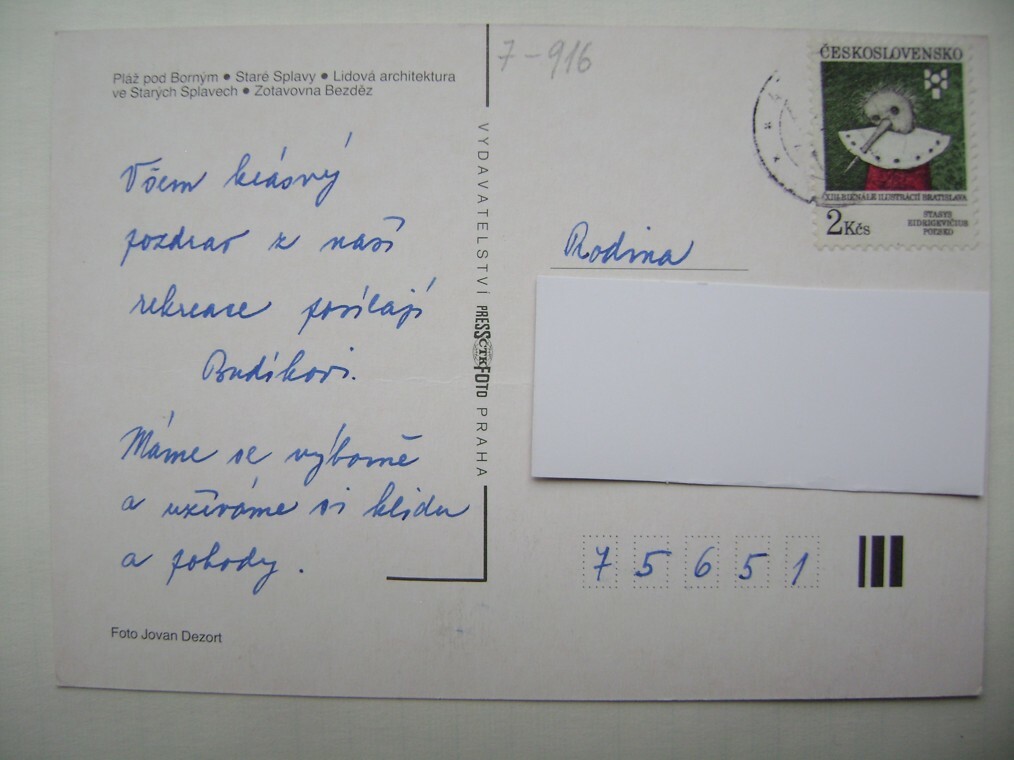 Pláž pod Borným • Staré Splavy • Lidová architektura
ve Starých Splavech • Zotavovna Bezděz
Všem krásný
pozdrav z naší
rekreace posílají
Budíkovi.
Máme se výborně
a užíváme si klidu
a pohody.
Foto Jovan Dezort
VYDAVATELSTVÍ PRESSFOTO PRAHA
ČTK
7-916
ČESKOSLOVENSKO
XIII. BIENÁLE ILUSTRÁCIÍ BRATISLAVA
2Kčs
STASYS
EIDRIGEVIČIUS
POĽSKO
Rodina
7 5 6 5 1